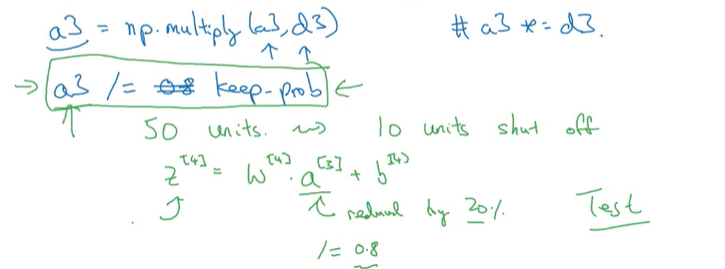 a3 = np.multiply(a3, d3) # a3 *= d3.
a3 /= 0.8 keep-prob
50 units. ⇝ 10 units shut off
z^[4] = W^[4] · a^[3] + b^[4]
reduced by 20%. Test
/= 0.8